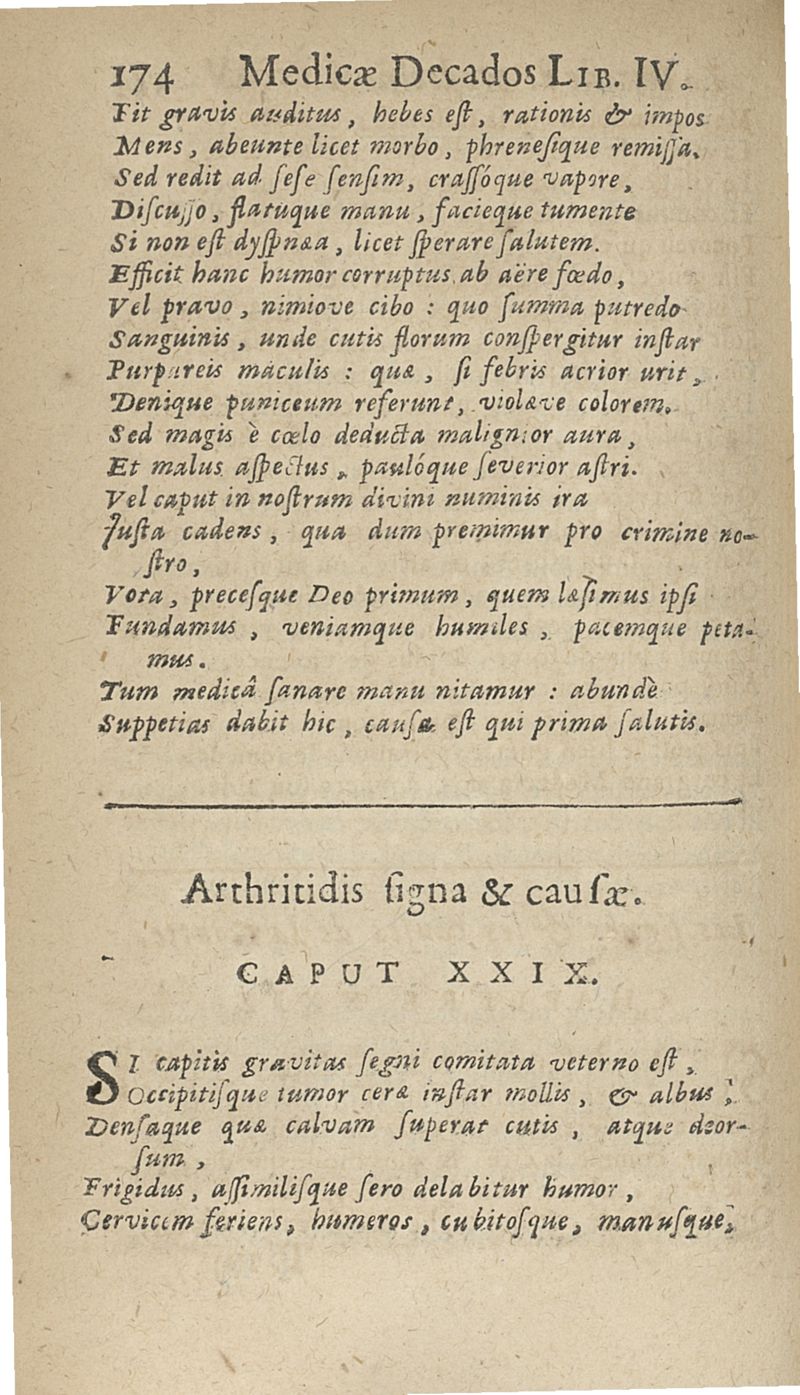 174 Medicæ Decados LIB. IV.
Fit gravis auditus, hebes eſt, rationis & impos
Mens, abeunte licet morbo, phreneſique remiſſa.
Sed redit ad ſeſe ſenſim, craſſóque vapore,
Diſcuſſo, flatuque manu, facieque tumente
Si non eſt dyſpnæa, licet ſperare ſalutem.
Efficit hanc humor corruptus ab aëre fœdo,
Vel pravo, nimiove cibo : quo ſumma putredo
Sanguinis, unde cutis florum conſpergitur inſtar
Purpureis maculis : quæ, ſi febris acrior urit,
Denique puniceum referunt, violæve colorem.
Sed magis è cœlo deducta malignior aura,
Et malus aſpectus, paulóque ſeverior aſtri.
Vel caput in noſtrum divini numinis ira
Juſta cadens, qua dum premimur pro crimine no-
ſtro,
Vota, preceſque Deo primum, quem læſimus ipſi
Fundamus, veniamque humiles, pacemque peta-
mus.
Tum medicâ ſanare manu nitamur : abundè
Suppetias dabit hic, cauſæ eſt qui prima ſalutis.
Arthritidis ſigna & cauſæ.
CAPUT XXIX.
SI capitis gravitas ſegni comitata veterno eſt,
Occipitiſque tumor ceræ inſtar mollis, & albus,
Denſaque quæ calvam ſuperat cutis, atque deor-
ſum,
Frigidus, aſſimiliſque ſero delabitur humor,
Cervicem feriens, humeros, cubitoſque, manuſque,